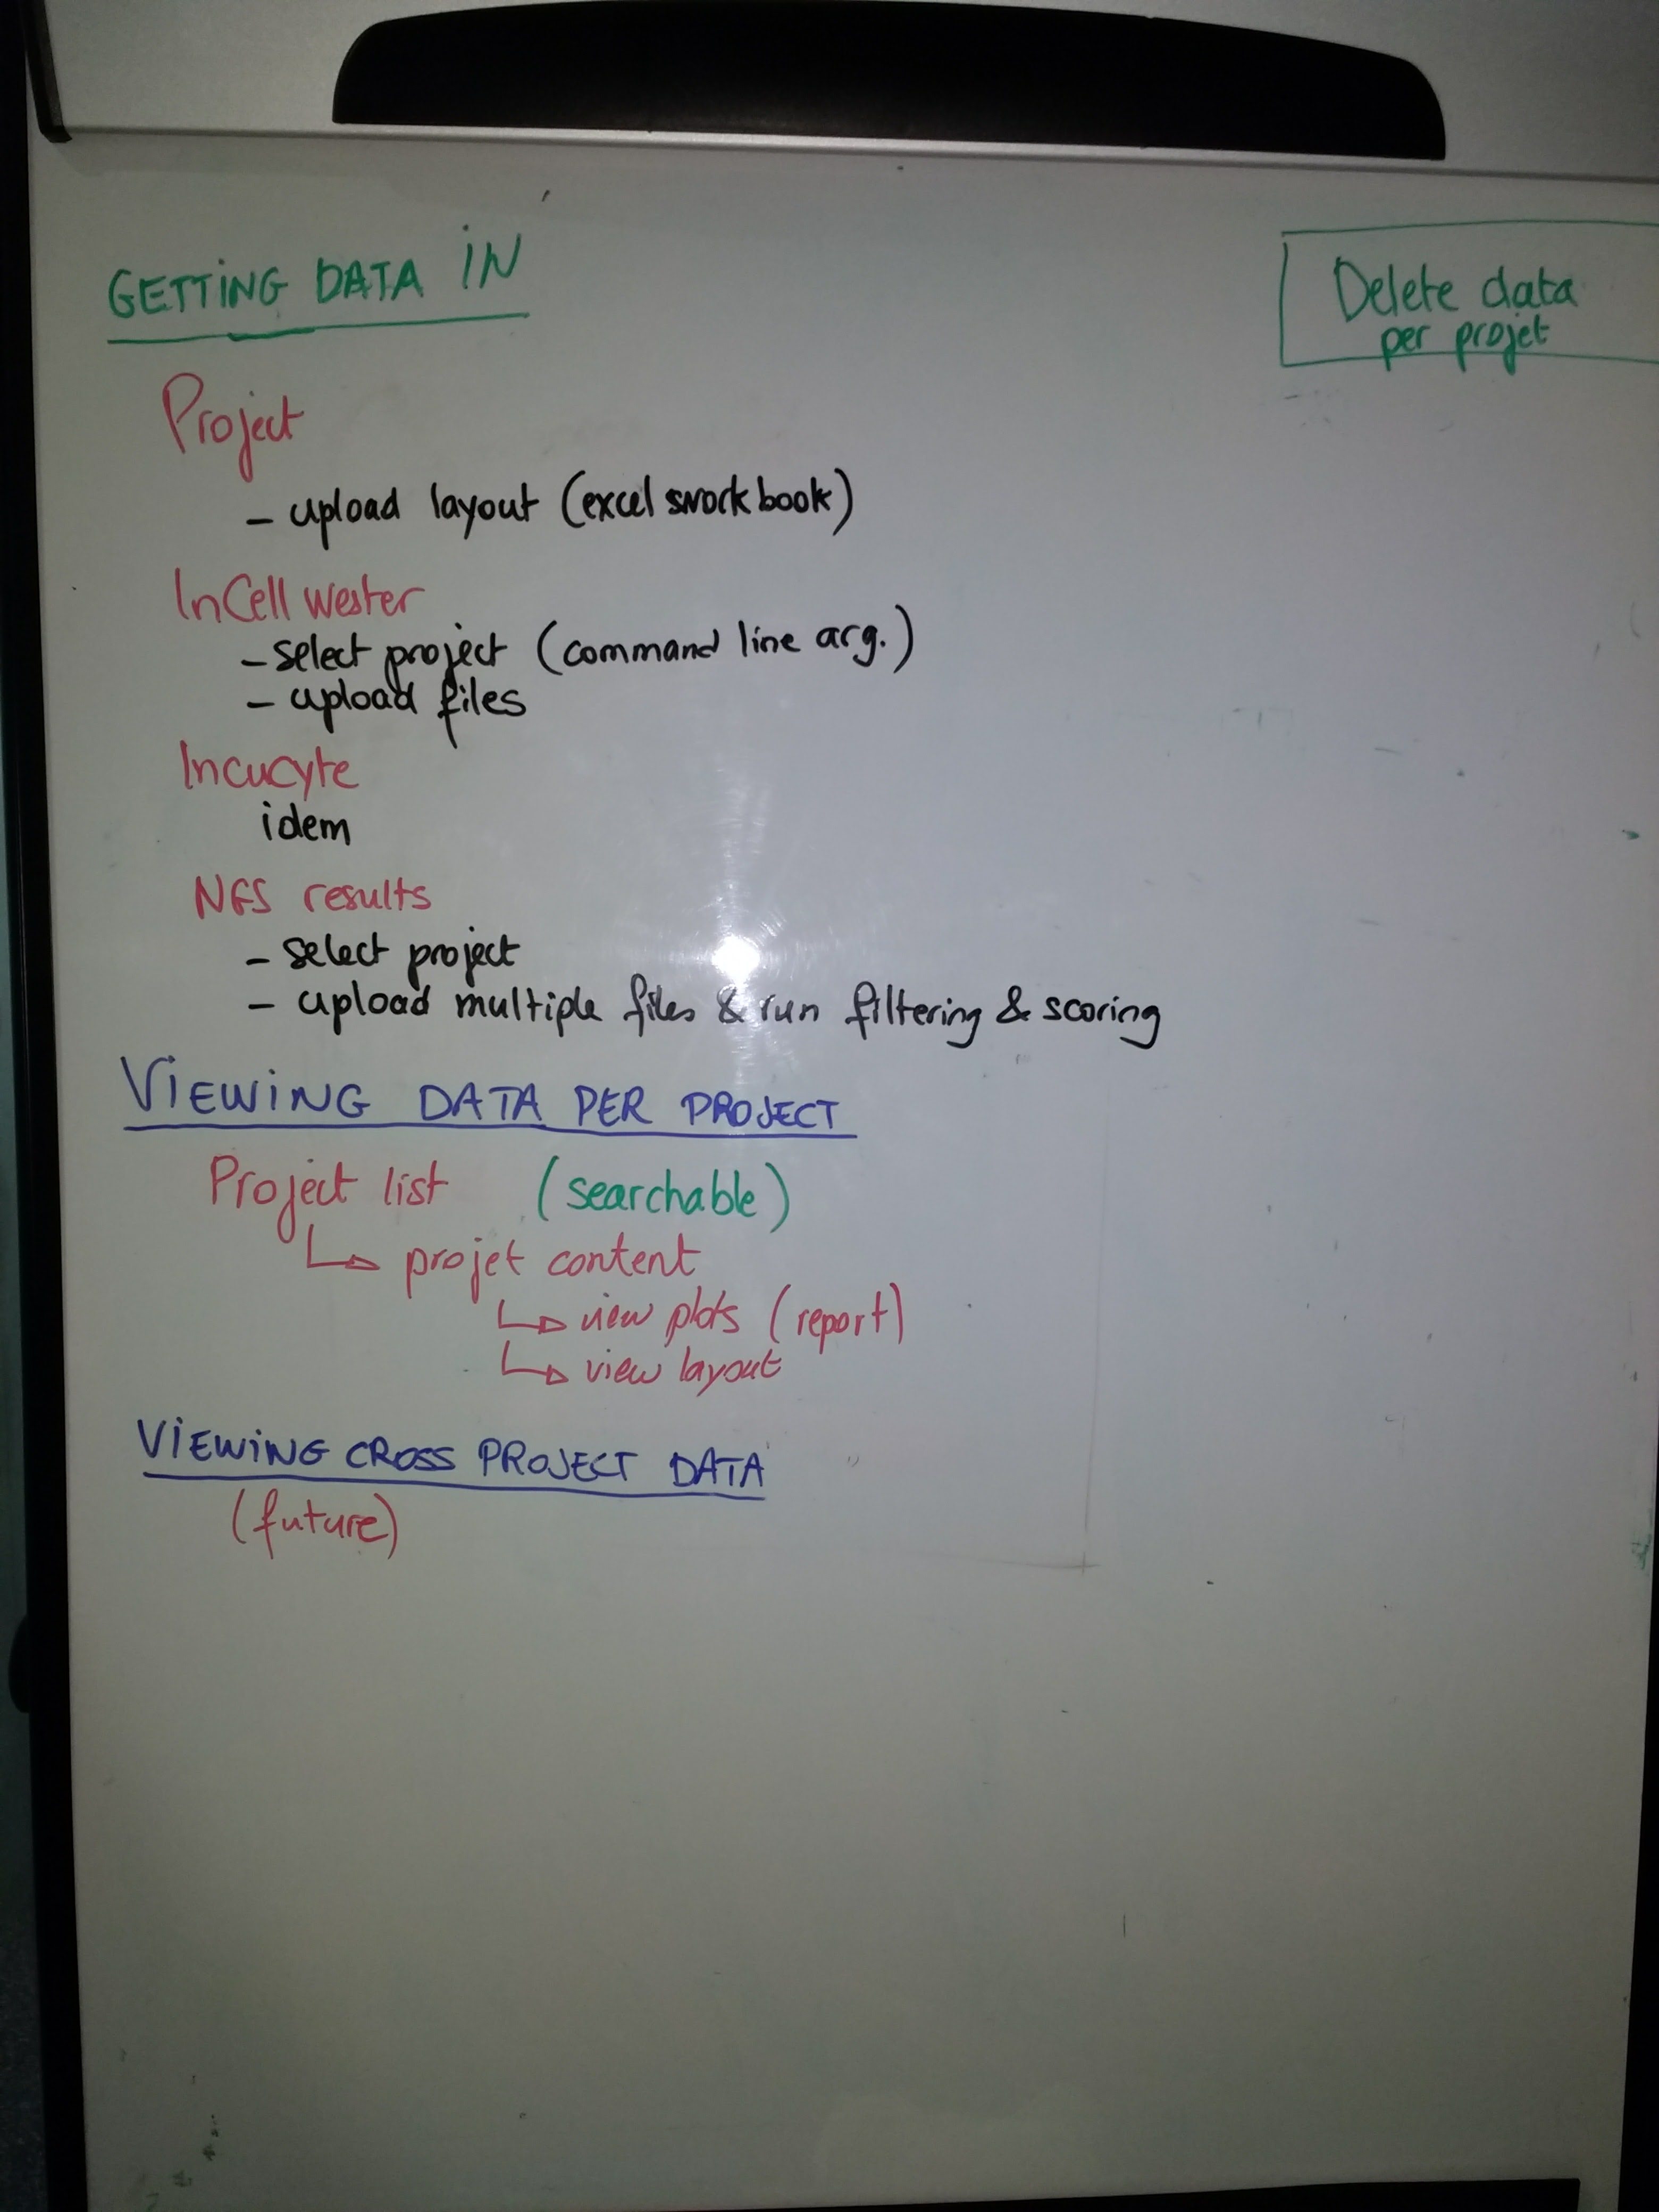 GETTING DATA IN
Delete data
per projet
Project
- upload layout (excel sworkbook)
InCell wester
- select project (command line arg.)
- upload files
Incucyte
idem
NGS results
- select project
- upload multiple files & run filtering & scoring
VIEWING DATA PER PROJECT
Project list (searchable)
↳ projet content
↳ view plots (report)
↳ view layout
VIEWING CROSS PROJECT DATA
(future)